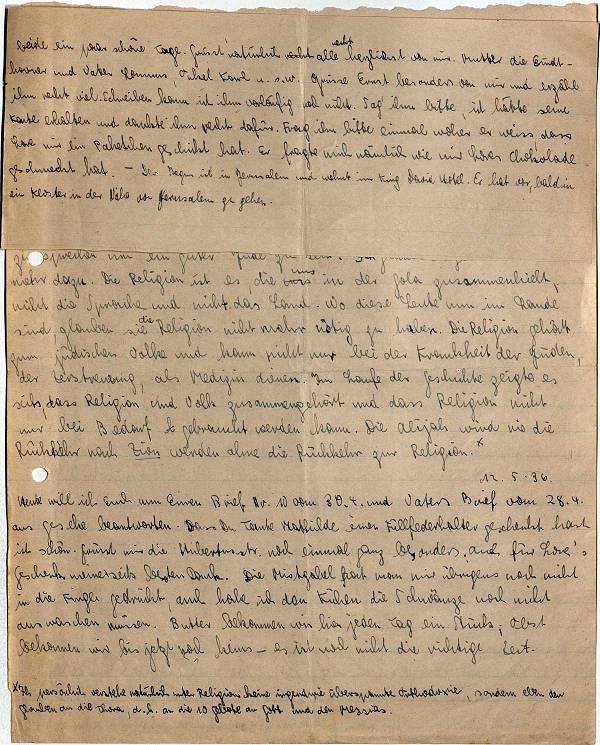 beide ein paar schöne Tage. Grüsst natürlich recht alle herzlichst von mir. Mutter die
und Vater Lommus, Onkel Karl u.s.w. Grüsse Ernst besonders von mir und erzähl
ihm recht viel. Schreiben kann ich ihm vorläufig noch nicht. Sag ihm bitte, ich hätte seine
Karte erhalten und dankte ihm recht dafür. Frag ihn bitte einmal woher er weiss, dass
Lore mir ein Paketchen geschickt hat. Er fragte mich nämlich wie mir Lores Chokolade
geschmeckt hat. – Der Negus ist in Jerusalem und wohnt im King David Hotel. Er hat vor, bald in
ein Kloster in der Nähe von Jerusalem zu gehen.
um ein guter Jude zu sein.
mehr dazu. Die Religion ist es, die uns in der Gola zusammenhielt,
nicht die Sprache und nicht das Land. Wo diese Leute nun im Lande
sind, glauben sie die Religion nicht mehr nötig zu haben. Die Religion gehört
zum jüdischen Volke und kann nicht nur bei der Krankheit der Juden,
der Zerstreuung, als Medizin dienen. Im Laufe der Geschichte zeigte es
sich, dass Religion und Volk zusammengehört und dass Religion nicht
nur bei Bedarf gebraucht werden kann. Die Alijah wird nie die
Rückkehr nach Zion werden ohne die Rückkehr zur Religion.*
12.5.36.
Heute will ich Euch nun Euren Brief Nr. 10 vom 30.4. und Vaters Brief vom 28.4.
aus beantworten. Dass Du Tante Mathilde einen Füllfederhalter geschenkt hast
ist schön. Grüsst mir die Hubertusstr. noch einmal ganz besonders, auch für Lore's
Geschenk meinerseits besten Dank. Die Mistgabel hat man mir übrigens noch nicht
in die Finger gedrückt, auch habe ich den Kühen die Schwänze noch nicht
auswaschen müssen. Butter bekommen wir hier jeden Tag ein Stück; Obst
bekommen wir bis jetzt noch keins – es ist noch nicht die richtige Zeit.
*Ich persönlich verstehe natürlich unter Religion keine irgendwie überspannte Orthodoxie, sondern eben den
Glauben an die Thora, d.h. an die 10 Gebote an Gott und den Messias.